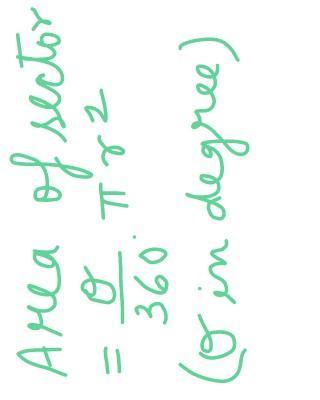 Area of sector
= θ/360 πr²
(θ in degree)